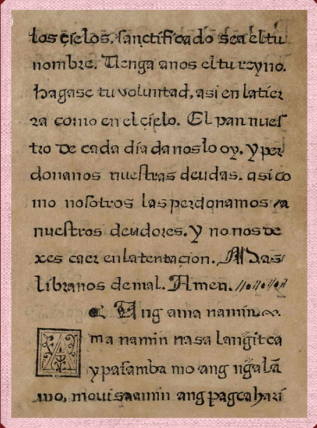 los çielos, sanctificado sea el tu
nombre. Uenga anos el tu reyno.
hagase tu voluntad, asi en la tier
ra como en el çielo. El pan nues
tro de cada dia da noslo oy. Y per
donanos nuestras deudas. asi co
mo nosotros las perdonamos a
nuestros deudores. Y no nos de
xes caer en la tentacion. Mas
libranos de mal. Amen.
Ang ama namin
ma namin nasa langitca
ypasamba mo ang ngalā
mo, mouisaamin ang pagcahari